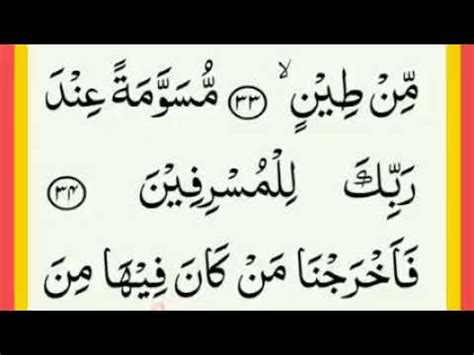 مِّنْ طِيْنٍ ۙ ﴿۳۳﴾ مُّسَوَّمَةً عِنْدَ
رَبِّكَ لِلْمُسْرِفِيْنَ ﴿۳۴﴾
فَاَخْرَجْنَا مَنْ كَانَ فِيْهَا مِنَ